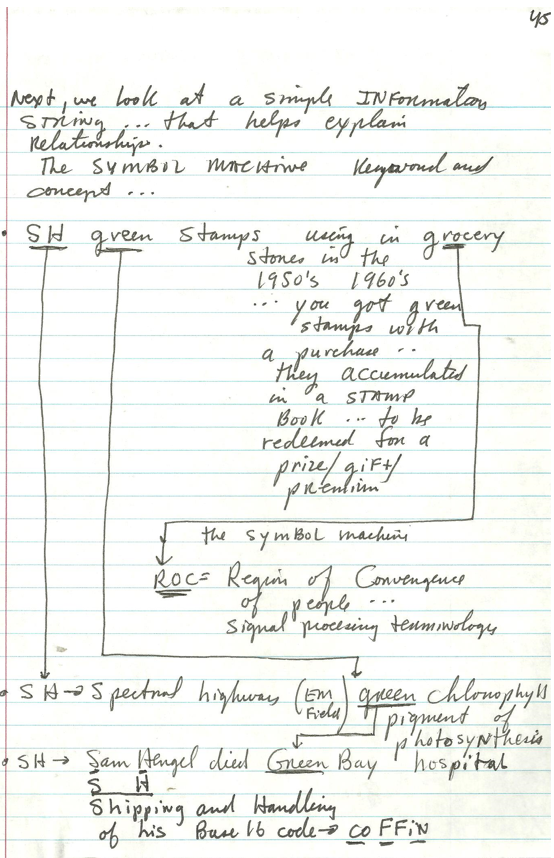 45
Next, we look at a simple INFormation
STRING ... that helps explain
Relationships.
The SYMBOL MACHINE Keyword and
concept ...
• SH green Stamps using in grocery
stones in the
1950's 1960's
... you got green
stamps with
a purchase ..
they accumulated
in a STAMP
Book ... to be
redeemed for a
prize/giFt/
premium
the symBOL machine
ROC= Region of Convergence
of people ...
Signal procesing terminology
• SH → Spectral highways (EM Field) green chlorophyll
pigment of
photosynthesis
• SH → Sam Hengel died Green Bay hospital
S H
Shipping and Handling
of his Base 16 code → CO FFiN